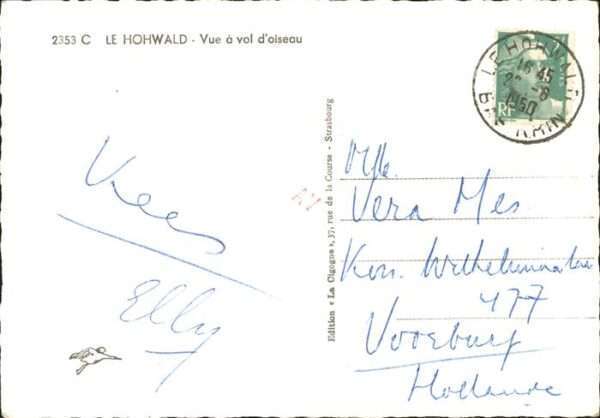 2353 C LE HOHWALD - Vue à vol d'oiseau
Kees
Elly
Edition « La Cigogne », 37, rue de la Course - Strasbourg
RF
LE HOHWALD
16 45
-8
1950
BAS RHIN
Mlle.
Vera Mes.
Kon. Wilhelminalaan
477
Voorburg
Hollande